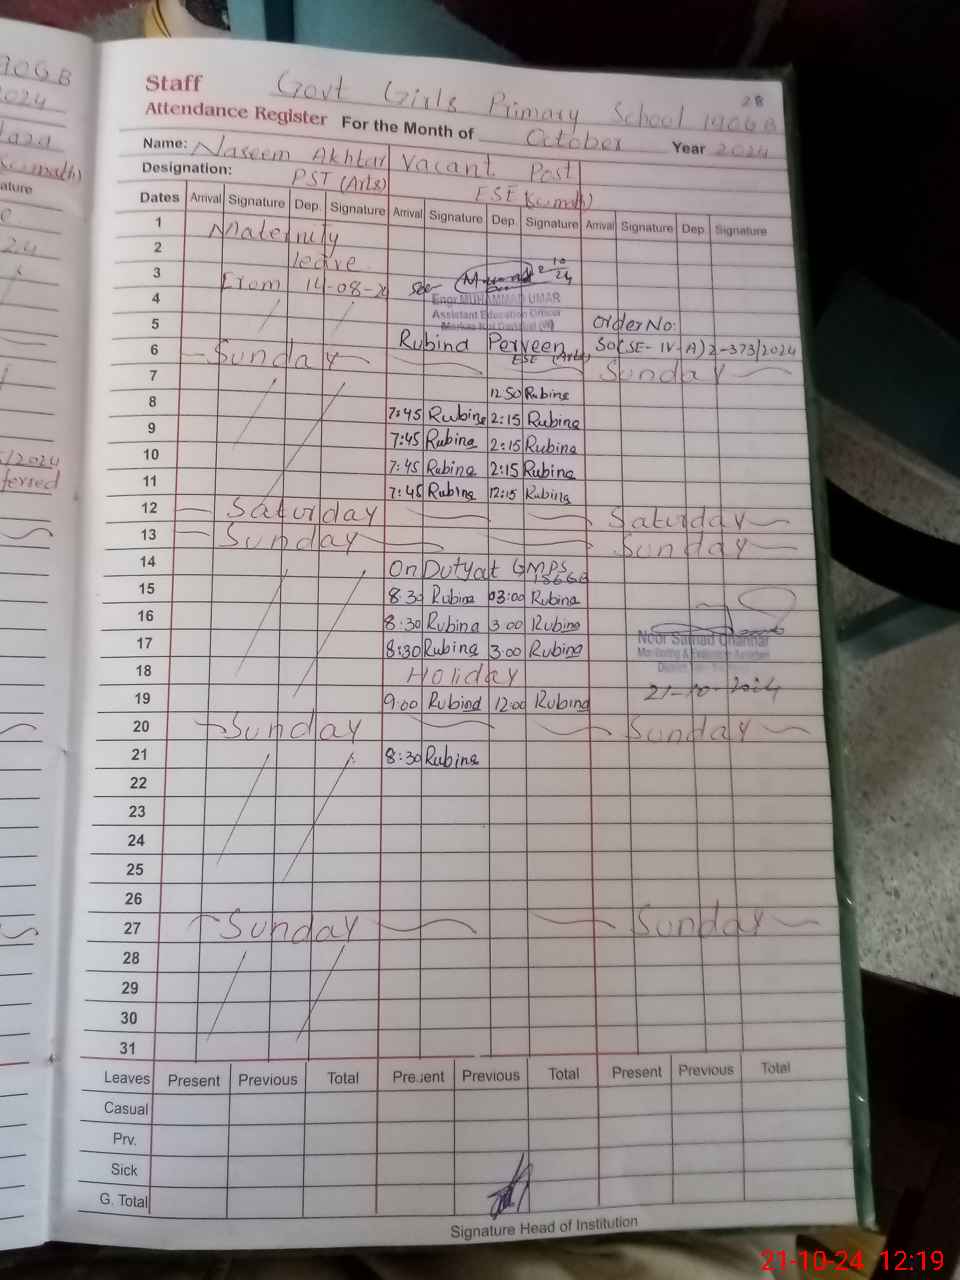 28
Staff Govt Girls Primary School 190GB
Attendance Register For the Month of October Year 2024
Name: Naseem Akhtar Vacant Post
Designation: PST (Arts) ESE (Sci math)
Dates Arrival Signature Dep. Signature Arrival Signature Dep. Signature Arrival Signature Dep. Signature
1 Maternity
2 leave
3 From 14-08-24 See 2-10-24
4 Engr.MUHAMMAD UMAR
Assistant Education Officer
5 Order No:
Rubina Perveen SO(SE-IV-A)2-373/2024
ESE (Arts)
6 Sunday Sunday
7 12:50 Rubina
8 7:45 Rubina 2:15 Rubina
9 7:45 Rubina 2:15 Rubina
10 7:45 Rubina 2:15 Rubina
11 7:45 Rubina 12:15 Rubina
12 Saturday Saturday
13 Sunday Sunday
14 On Duty at GMPS
186GB
15 8:30 Rubina 03:00 Rubina
16 8:30 Rubina 3:00 Rubina
17 8:30 Rubina 3:00 Rubina Noor Samad Channar
Monitoring & Evaluation Assistant
18 Holiday 21-10-2024
19 9:00 Rubina 12:00 Rubina
20 Sunday Sunday
21 8:30 Rubina
22
23
24
25
26
27 Sunday Sunday
28
29
30
31
Leaves Present Previous Total Present Previous Total Present Previous Total
Casual
Prv.
Sick
G. Total
Signature Head of Institution
21-10-24 12:19